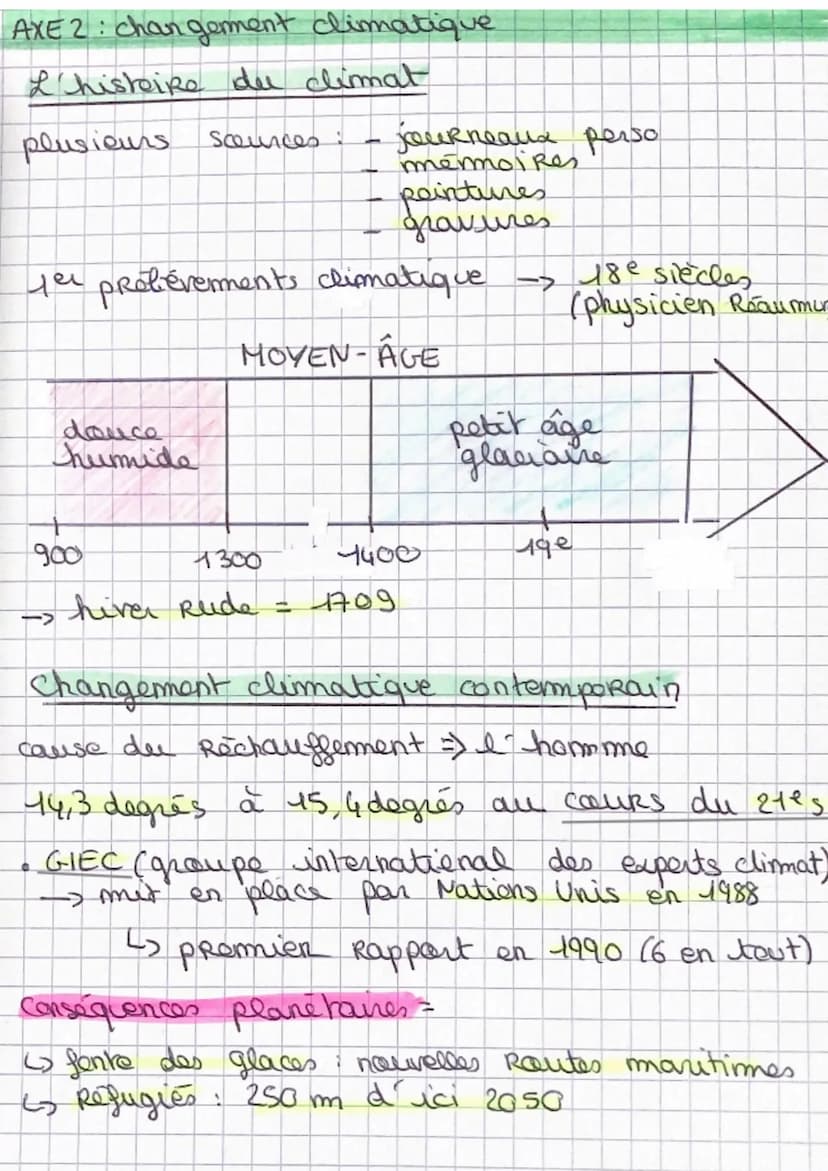 AXE 2 : changement climatique
L'histoire du climat
plusieurs sources : - journeaux perso
- mémoires
- peintures
- gravures
1er prélévements climatique -> 18e siècles
(physicien Réaumur
MOYEN-ÂGE
douce
humide
petit âge
glaciaire
900 1300 1400 19e
-> hiver rude = 1709
Changement climatique contemporain
cause du réchauffement => l'homme
14,3 degrés à 15,4 degrés au cours du 21e s
• GIEC (groupe international des experts climat)
-> mit en place par Nations Unis en 1988
↳ premier rapport en 1990 (6 en tout)
Conséquences planétaires =
↳ fonte des glaces : nouvelles routes maritimes
↳ Réfugiés : 250 m d'ici 2050